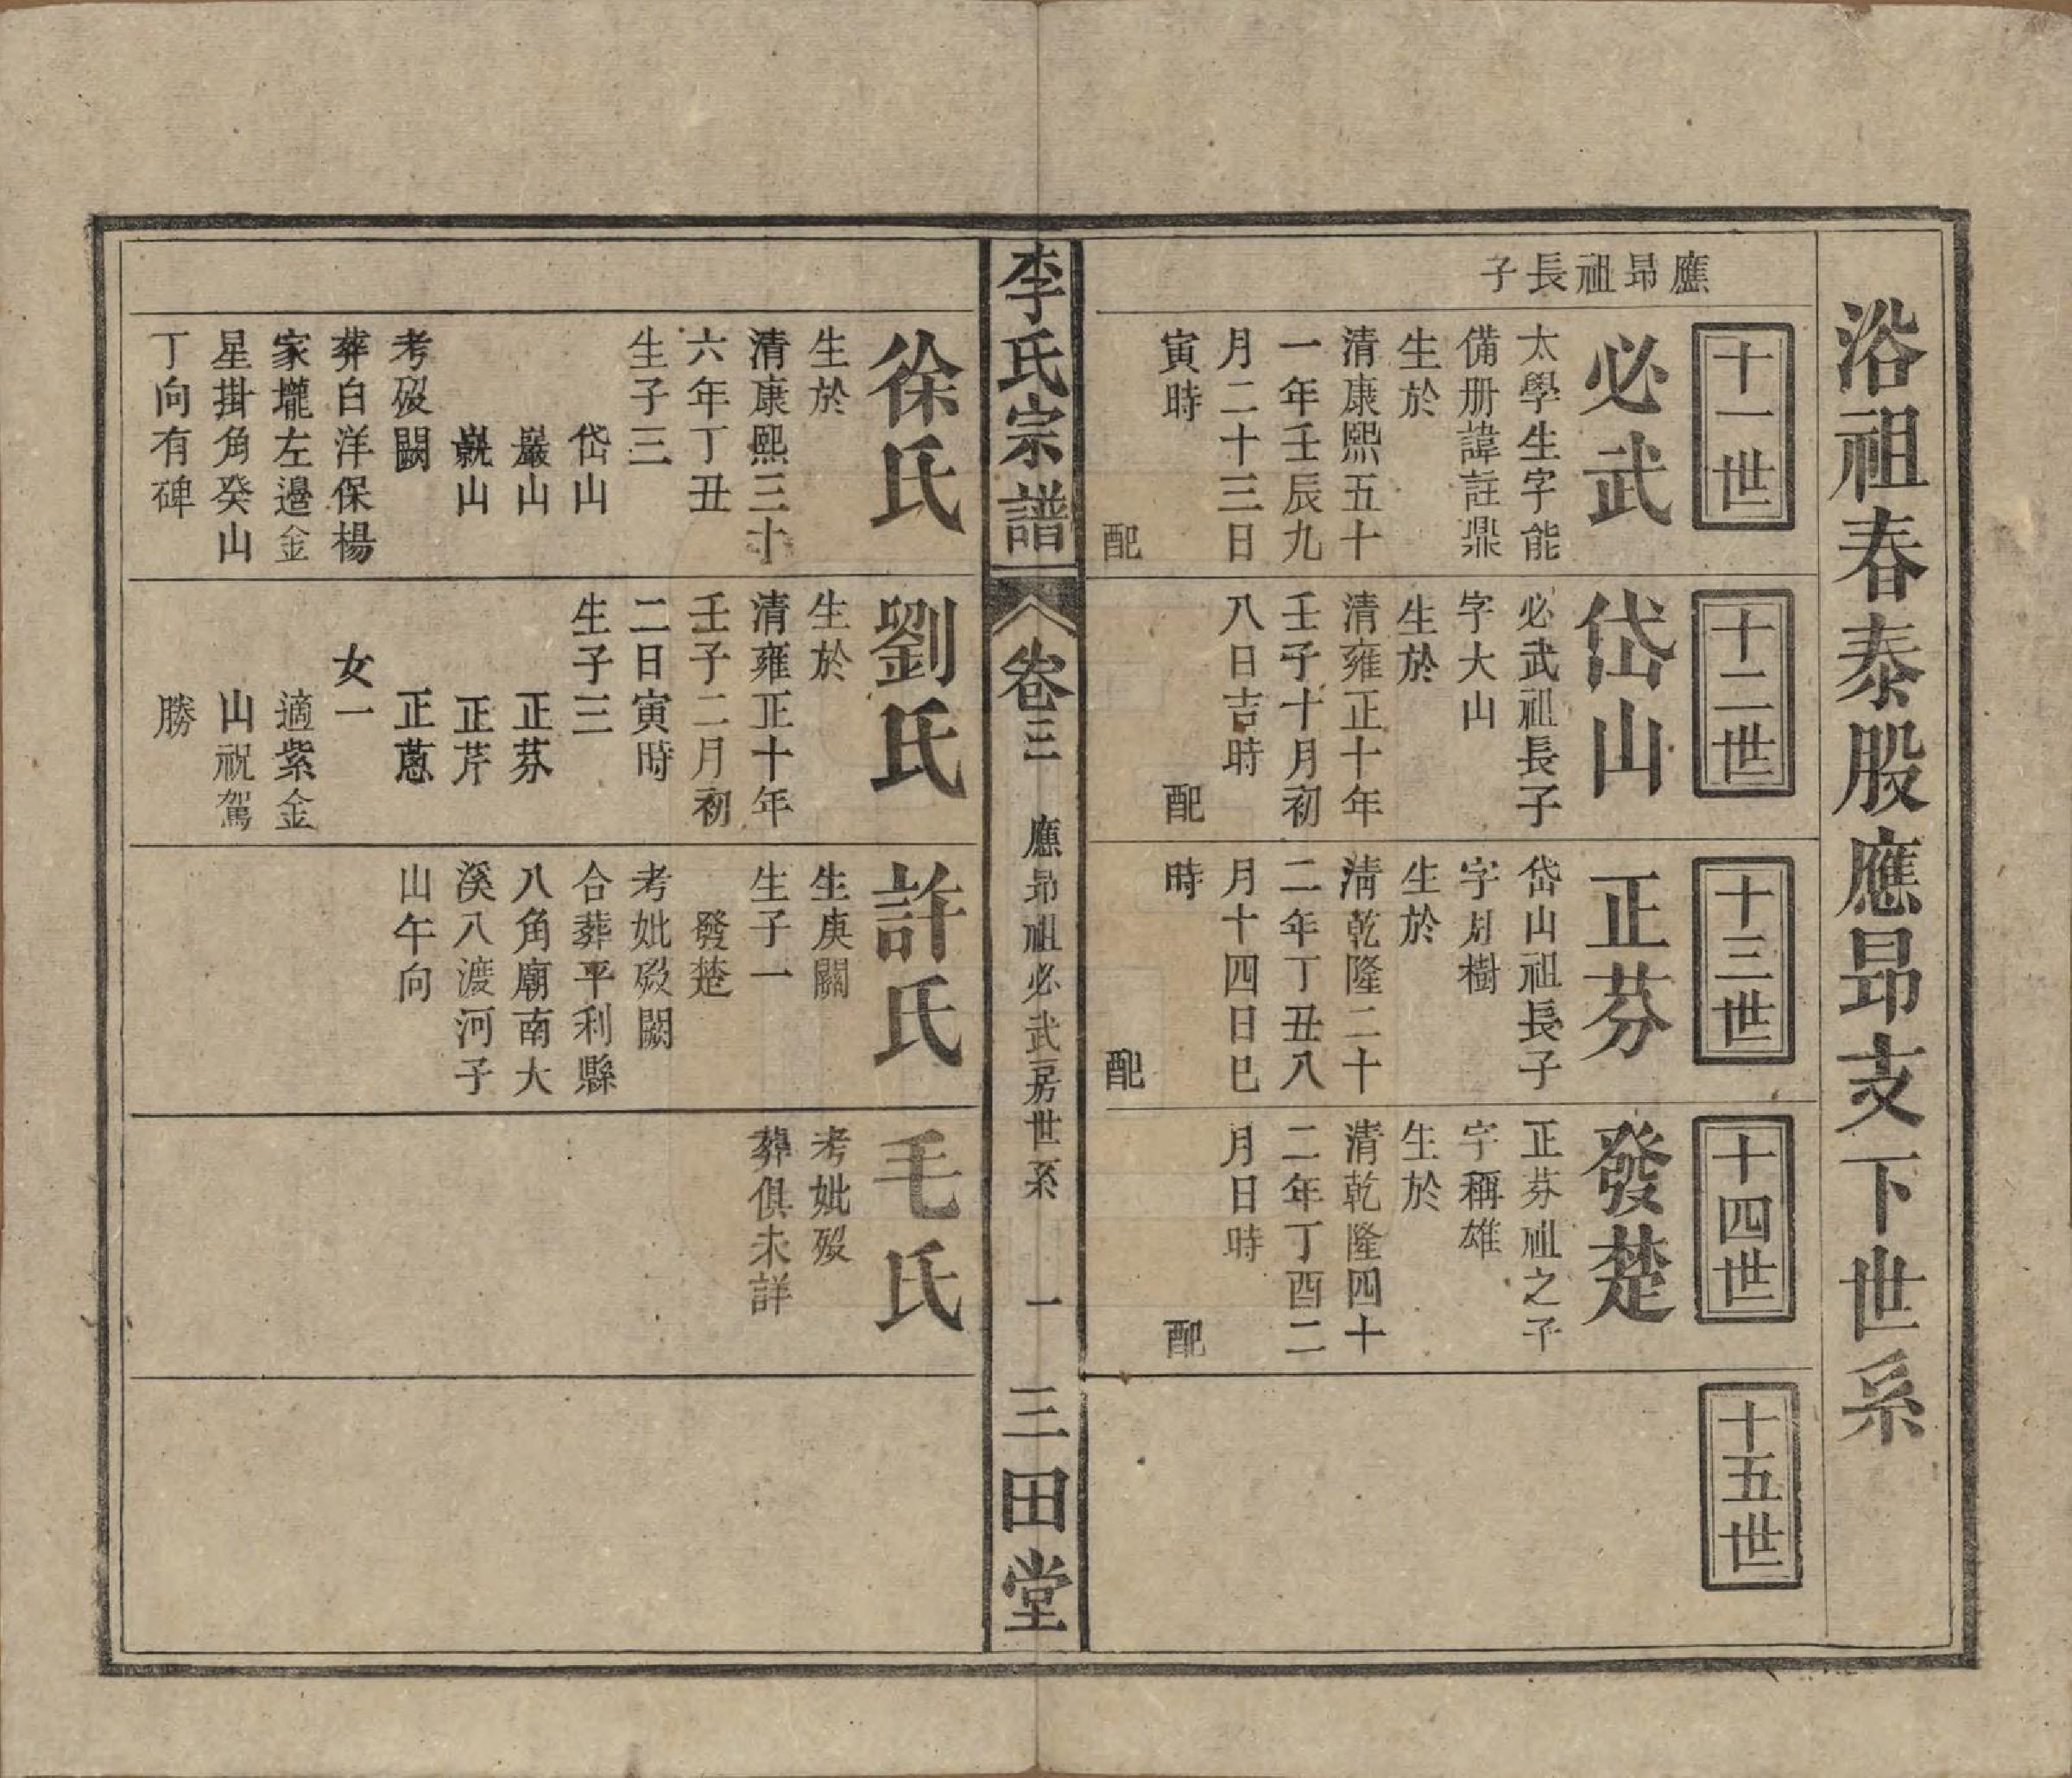 浴祖春泰股應昻支下世系
應昻祖長子
十一世
必武
太學生字能
備册諱註鼎
生於
清康熙五十
一年壬辰九
月二十三日
寅時
配
十二世
岱山
必武祖長子
字大山
生於
清雍正十年
壬子十月初
八日吉時
配
十三世
正芬
岱山祖長子
字月樹
生於
淸乾隆二十
二年丁丑八
月十四日巳
時
配
十四世
發楚
正芬祖之子
字稱雄
生於
清乾隆四十
二年丁酉二
月日時
配
十五世
李氏宗譜
卷三
應昻祖必武房世系
一
三田堂
徐氏
生於
清康熙三十
六年丁丑
生子三
岱山
巖山
山
考歿闕
葬白洋保楊
家壠左邉金
星掛角癸山
丁向有碑
劉氏
生於
清雍正十年
壬子二月初
二日寅時
生子三
正芬
正芹
正蒽
女一
適紫金
山祝駕
勝
許氏
生庚闕
生子一
發楚
考妣歿闕
合葬平利縣
八角廟南大
溪八渡河子
山午向
毛氏
考妣歿
葬俱未詳